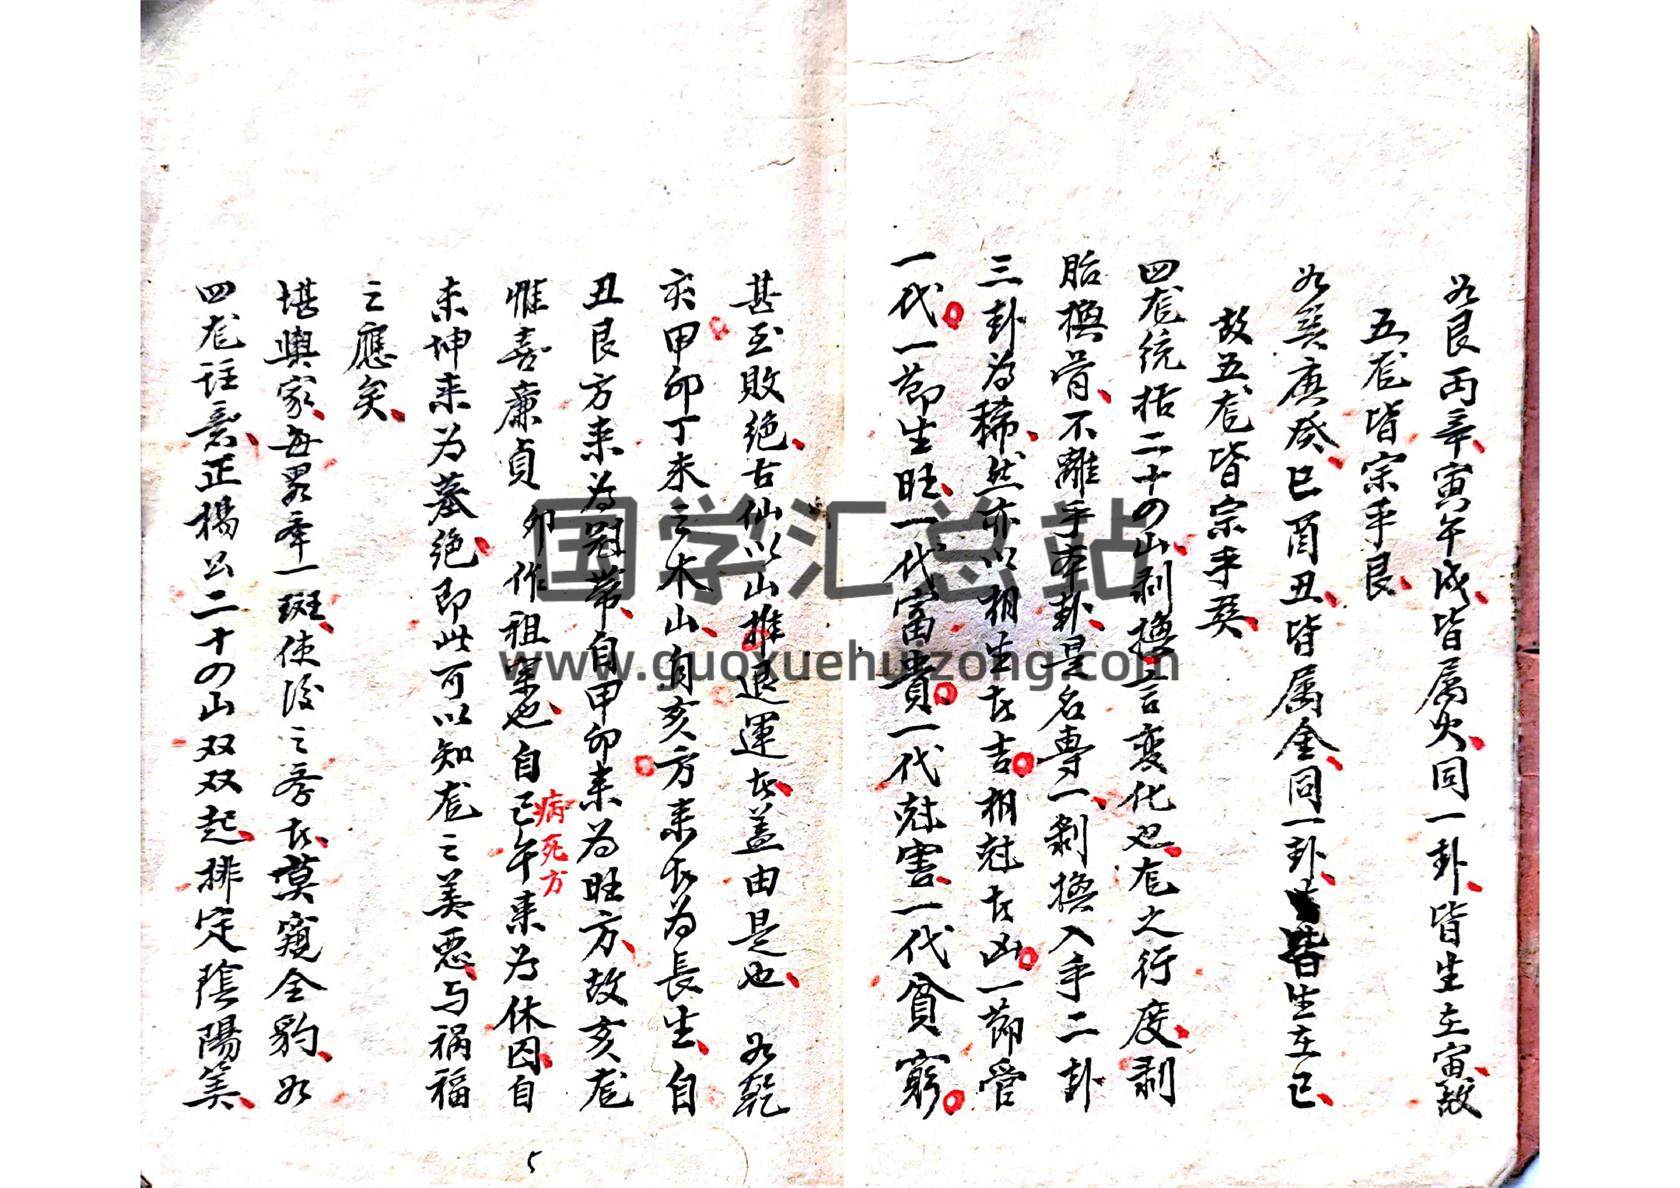 如艮丙辛寅午戌皆属火同一卦皆生在寅故
五龙皆宗乎艮
如巽庚癸巳酉丑皆属金同一卦皆生在巳
故五龙皆宗乎巽
四龙统括二十四山剥换言变化也龙之行度剥
胎换骨不離乎本卦是名專一剥换入手二卦
三卦為稀然亦以相生者吉相尅者凶一節管
一代一節生旺一代富貴一代尅害一代貧窮
甚至敗绝古仙以山推退運者盖由是也如乾
亥甲卯丁未之木山自亥方来者為長生自
丑艮方来為冠帶自甲卯来為旺方故亥龙
惟喜廉貞卯作祖宗也自巳午来為休囚自
病死方
未坤来為墓绝即此可以知龙之美惡与祸福
之應矣
堪輿家每畧牽一斑使後之学者莫窺全豹如
四龙註意正楊公二十四山双双起排定陰陽算
5
国学汇总站
www.guoxuehuizong.com